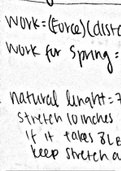 work=(Force)(dista
work for spring =
natural lenght=7
stretch 10 inches
if it takes 8LB
keep stretch a